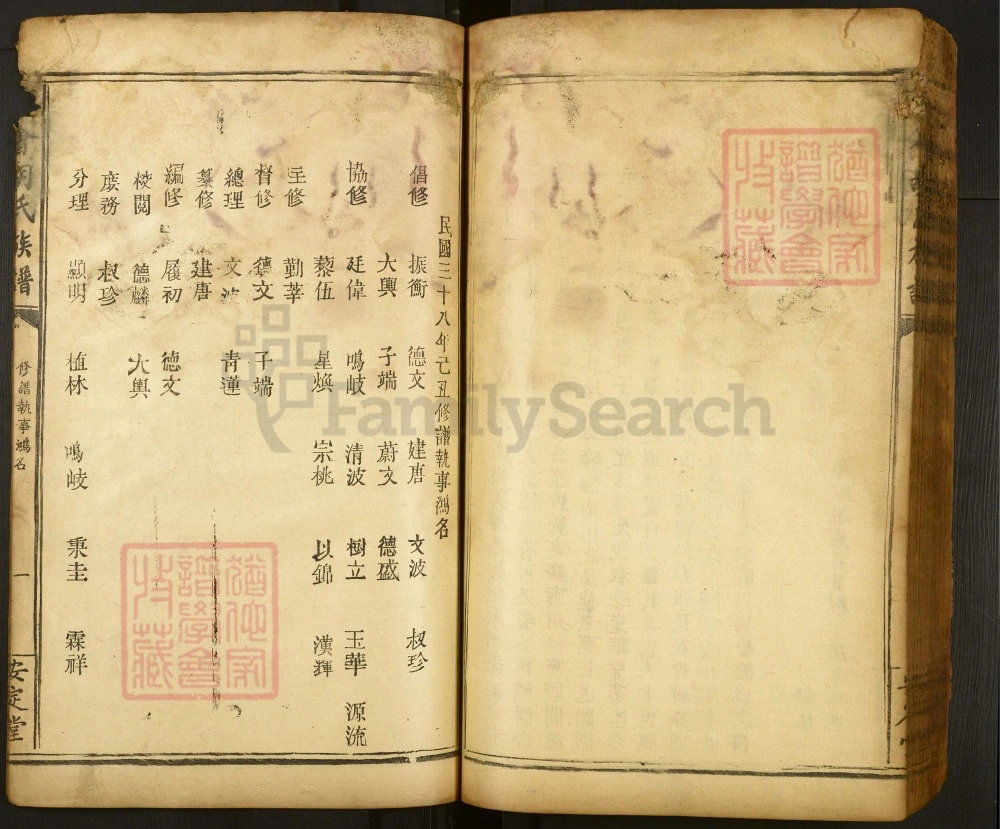 民國三十八年己丑修譜執事鴻名
倡修 振衡 德文 建唐 文波 叔珍
大興 子端 蔚文 德盛
協修 廷偉 鳴岐 清波 樹立 玉華 源流
藜伍 星煥 宗桃 以錦 漢輝
主修 勤莘
督修 德文 子端
總理 文波 青蓮
纂修 建唐
編修 履初 德文
校閱 德麟 大興
庶務 叔珍
分理 顯明 植林 鳴岐 秉圭 霖祥
氏族譜
修譜執事鴻名
一
安定堂
猶他家譜學會收藏
猶他家譜學會收藏
FamilySearch